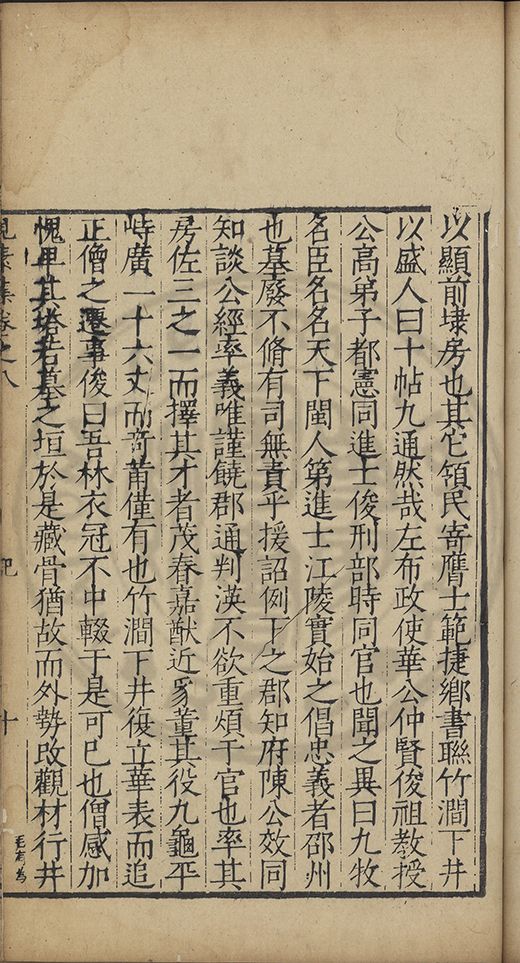 以顯前埭房也其它領民寄膺士範捷鄉書聯竹澗下井
以盛人曰十帖九通然哉左布政使華公仲賢俊祖教授
公高弟子都憲同進士俊刑部時同官也聞之異曰九牧
名臣名名天下閩人第進士江陵實始之倡忠義者邵州
也墓廢不脩有司無責乎援詔例下之郡知府陳公效同
知談公經率義唯謹饒郡通判渶不欲重煩于官也率其
房佐三之一而擇其才者茂春嘉猷近豸董其役九龜平
峙廣一十六丈而奇莆僅有也竹澗下井復立華表而追
正僧之遷事俊曰吾林衣冠不中輟于是可已也僧感加
愧畀其塔若墓之垣於是藏骨猶故而外勢改觀材行井
見素集卷之八
記
十